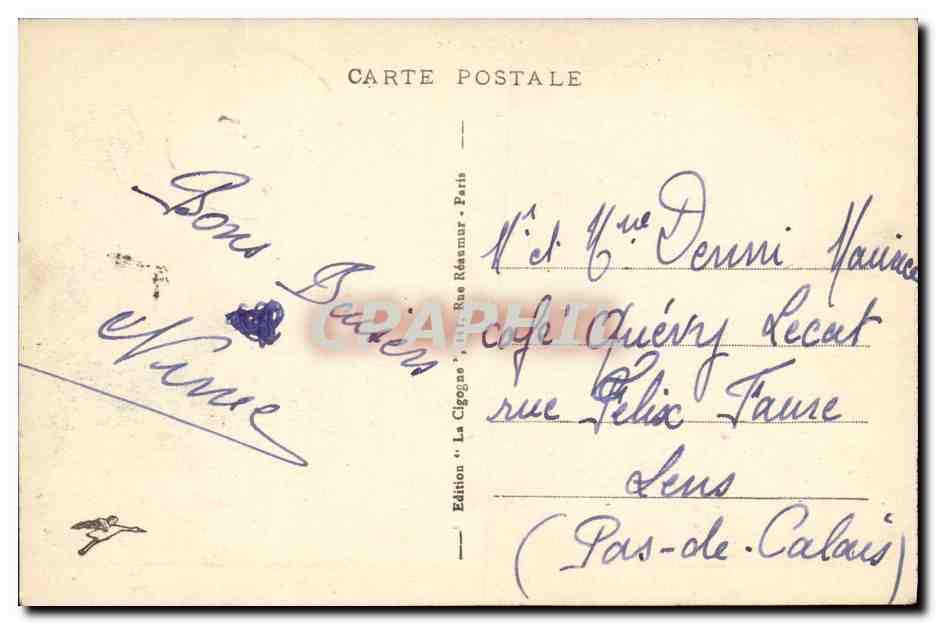 CARTE POSTALE
Bons
Baisers
Edition " La Cigogne ", 111, Rue Réaumur - Paris
Mr et Mme Denni Maurice
café Quévy Lecat
rue Félix Faure
Lens
(Pas-de-Calais)
CPAPHIL